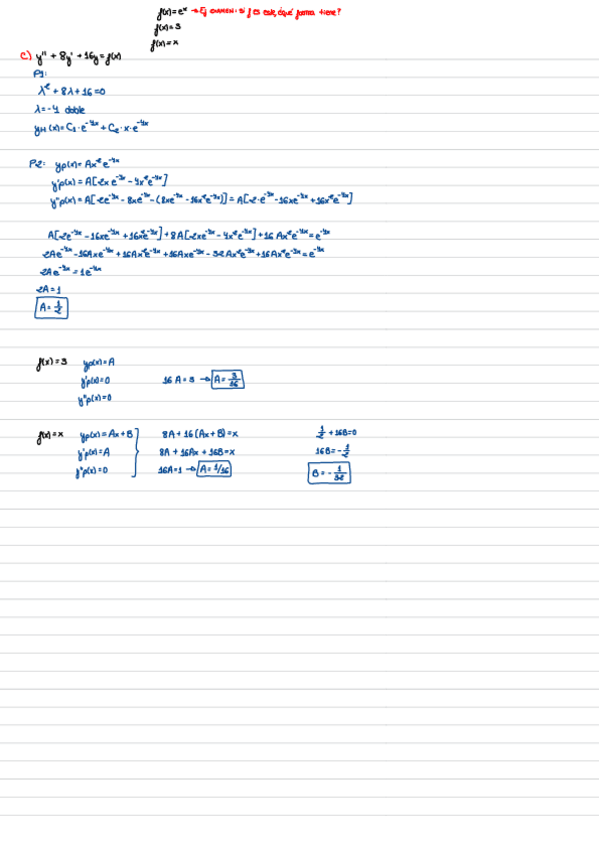 f(x) = eˣ → Ej examen: si f es este, ¿qué forma tiene?
f(x) = 3
f(x) = x
c) y'' + 8y' + 16y = f(x)
P1:
λ² + 8λ + 16 = 0
λ = -4 doble
yH(x) = C₁·e⁻⁴ˣ + C₂·x·e⁻⁴ˣ
P2: yp(x) = Ax²e⁻⁴ˣ
y'p(x) = A[2xe⁻⁴ˣ - 4x²e⁻⁴ˣ]
y''p(x) = A[2e⁻⁴ˣ - 8xe⁻⁴ˣ - (8xe⁻⁴ˣ - 16x²e⁻⁴ˣ)] = A[2·e⁻⁴ˣ - 16xe⁻⁴ˣ + 16x²e⁻⁴ˣ]
A[2e⁻⁴ˣ - 16xe⁻⁴ˣ + 16x²e⁻⁴ˣ] + 8A[2xe⁻⁴ˣ - 4x²e⁻⁴ˣ] + 16Ax²e⁻⁴ˣ = e⁻⁴ˣ
2Ae⁻⁴ˣ - 16Axe⁻⁴ˣ + 16Ax²e⁻⁴ˣ + 16Axe⁻⁴ˣ - 32Ax²e⁻⁴ˣ + 16Ax²e⁻⁴ˣ = e⁻⁴ˣ
2Ae⁻⁴ˣ = 1e⁻⁴ˣ
2A = 1
A = 1/2
f(x) = 3 yp(x) = A
y'p(x) = 0 16A = 3 → A = 3/16
y''p(x) = 0
f(x) = x yp(x) = Ax + B 8A + 16(Ax + B) = x 1/2 + 16B = 0
y'p(x) = A 8A + 16Ax + 16B = x 16B = -1/2
y''p(x) = 0 16A = 1 → A = 1/16 B = -1/32